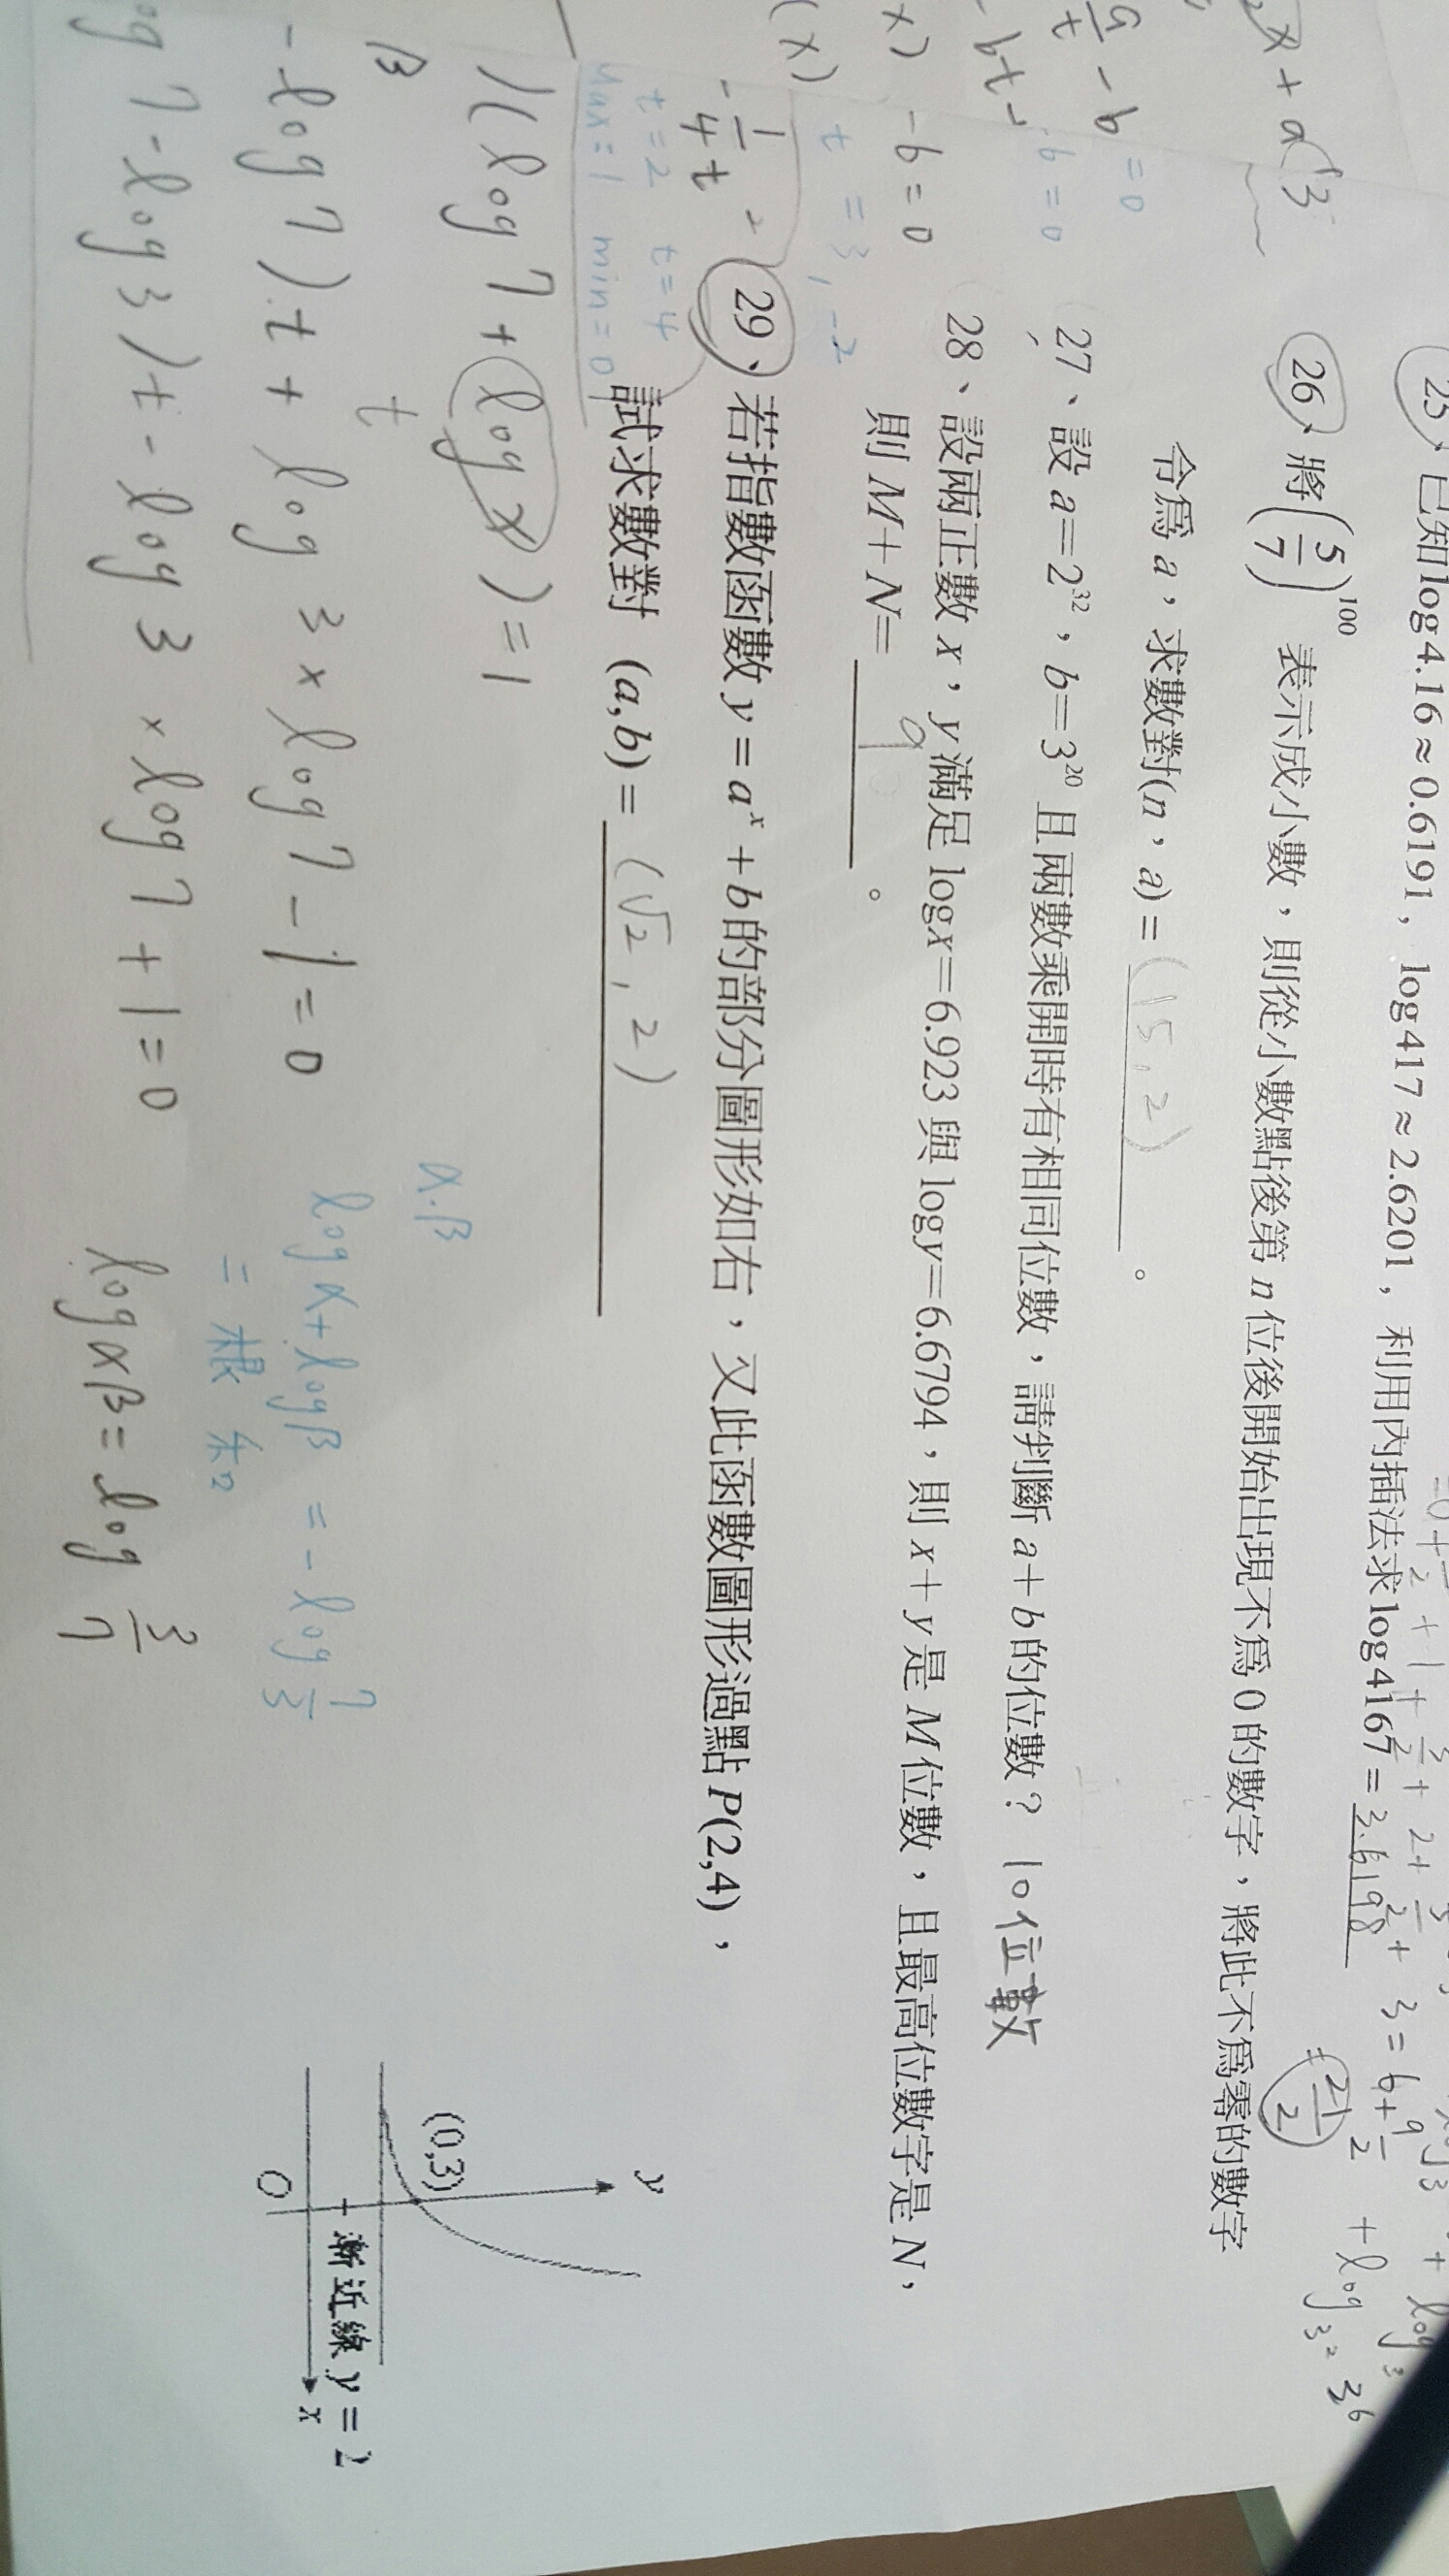 25、已知log4.16≈0.6191，log417≈2.6201，利用內插法求log4167=3.6198
26、將(5/7)^100 表示成小數，則從小數點後第n位後開始出現不為0的數字，將此不為零的數字
令為a，求數對(n，a)=(15,2)。
27、設a=2^32，b=3^20且兩數乘開時有相同位數，請判斷a+b的位數？10位數
28、設兩正數x，y滿足logx=6.923與logy=6.6794，則x+y是M位數，且最高位數字是N，
則M+N=9。
29、若指數函數y=a^x+b的部分圖形如右，又此函數圖形過點P(2,4)，
試求數對 (a,b)=(√2,2)
y
(0,3)
漸近線y=2
O
x
x+a(3
=0
-b=0
-b=0
t=3,-2
-1/4 t²
t=2 t=4
Max=1 min=0
)(log7+logx)=1
t
β
-log7).t+log3×log7-1=0
og7-log3)t-log3×log7+1=0
α.β
logα+logβ=-log7/3
=根和
logαβ=log3/7
+1+3/2+2+
+3=6+9/2
=21/2